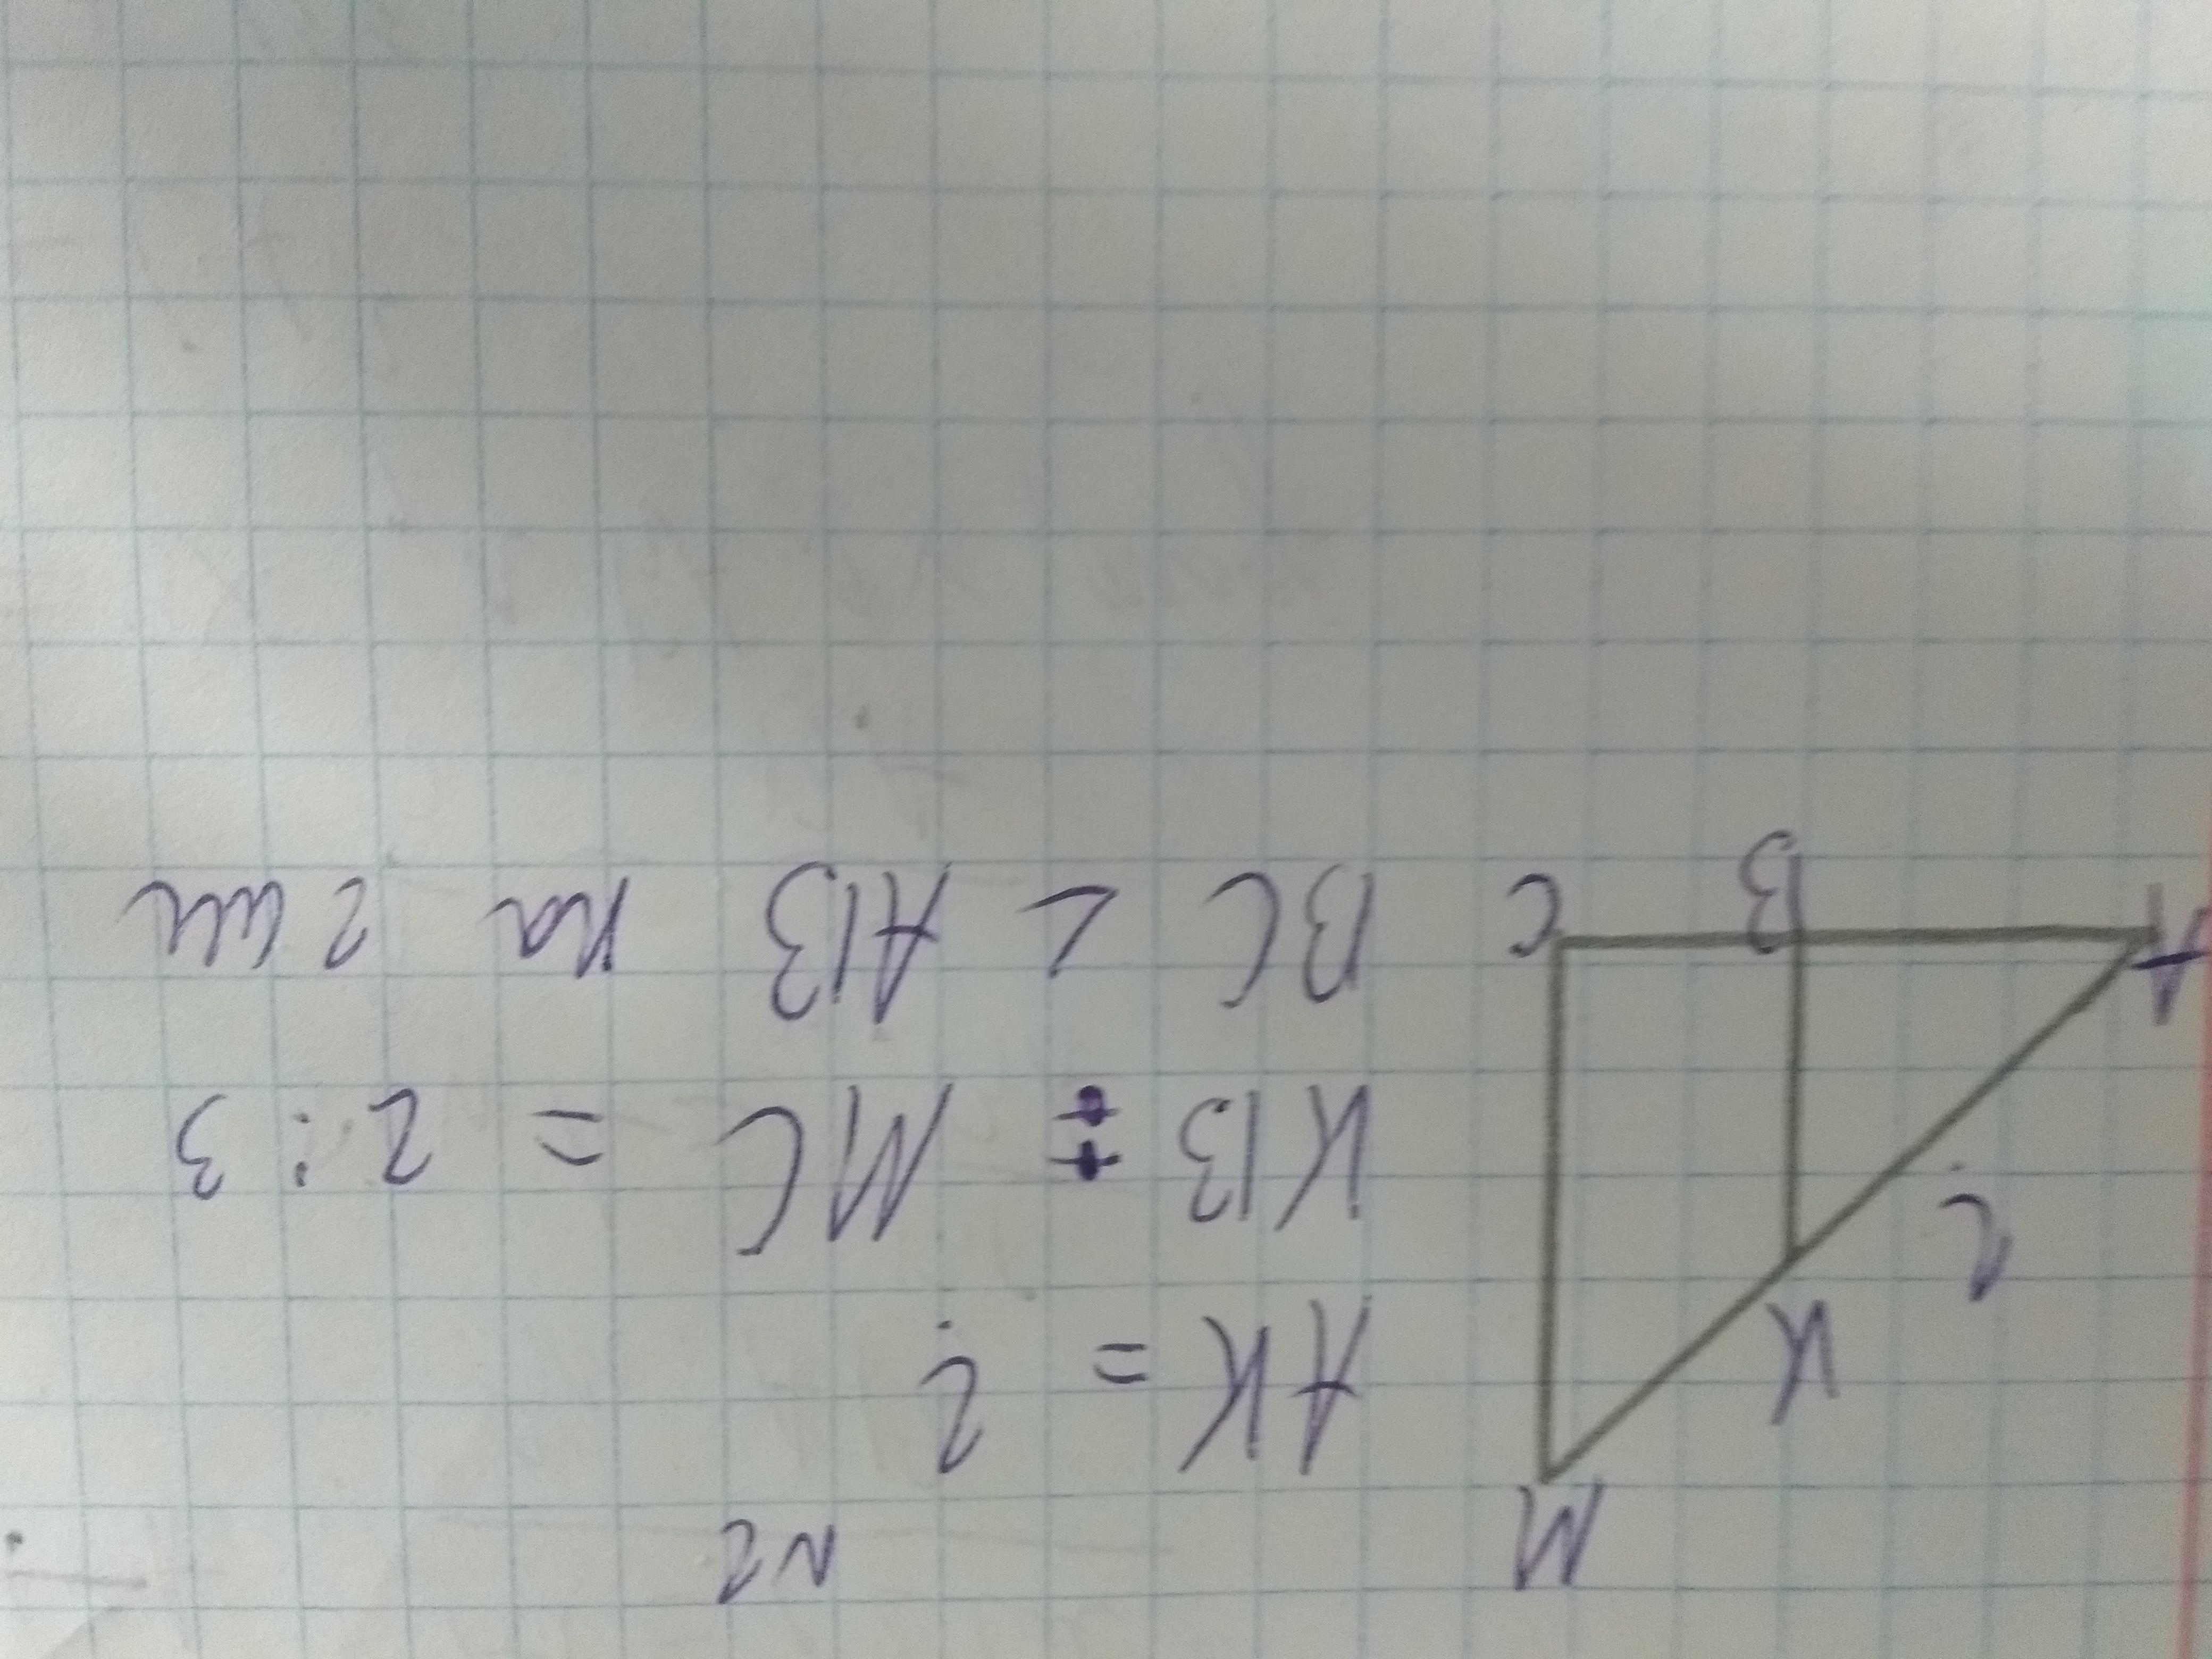 N2
M
AK = ?
K
?
KB : MC = 2 : 3
A
B
C
BC < AB на 2 см